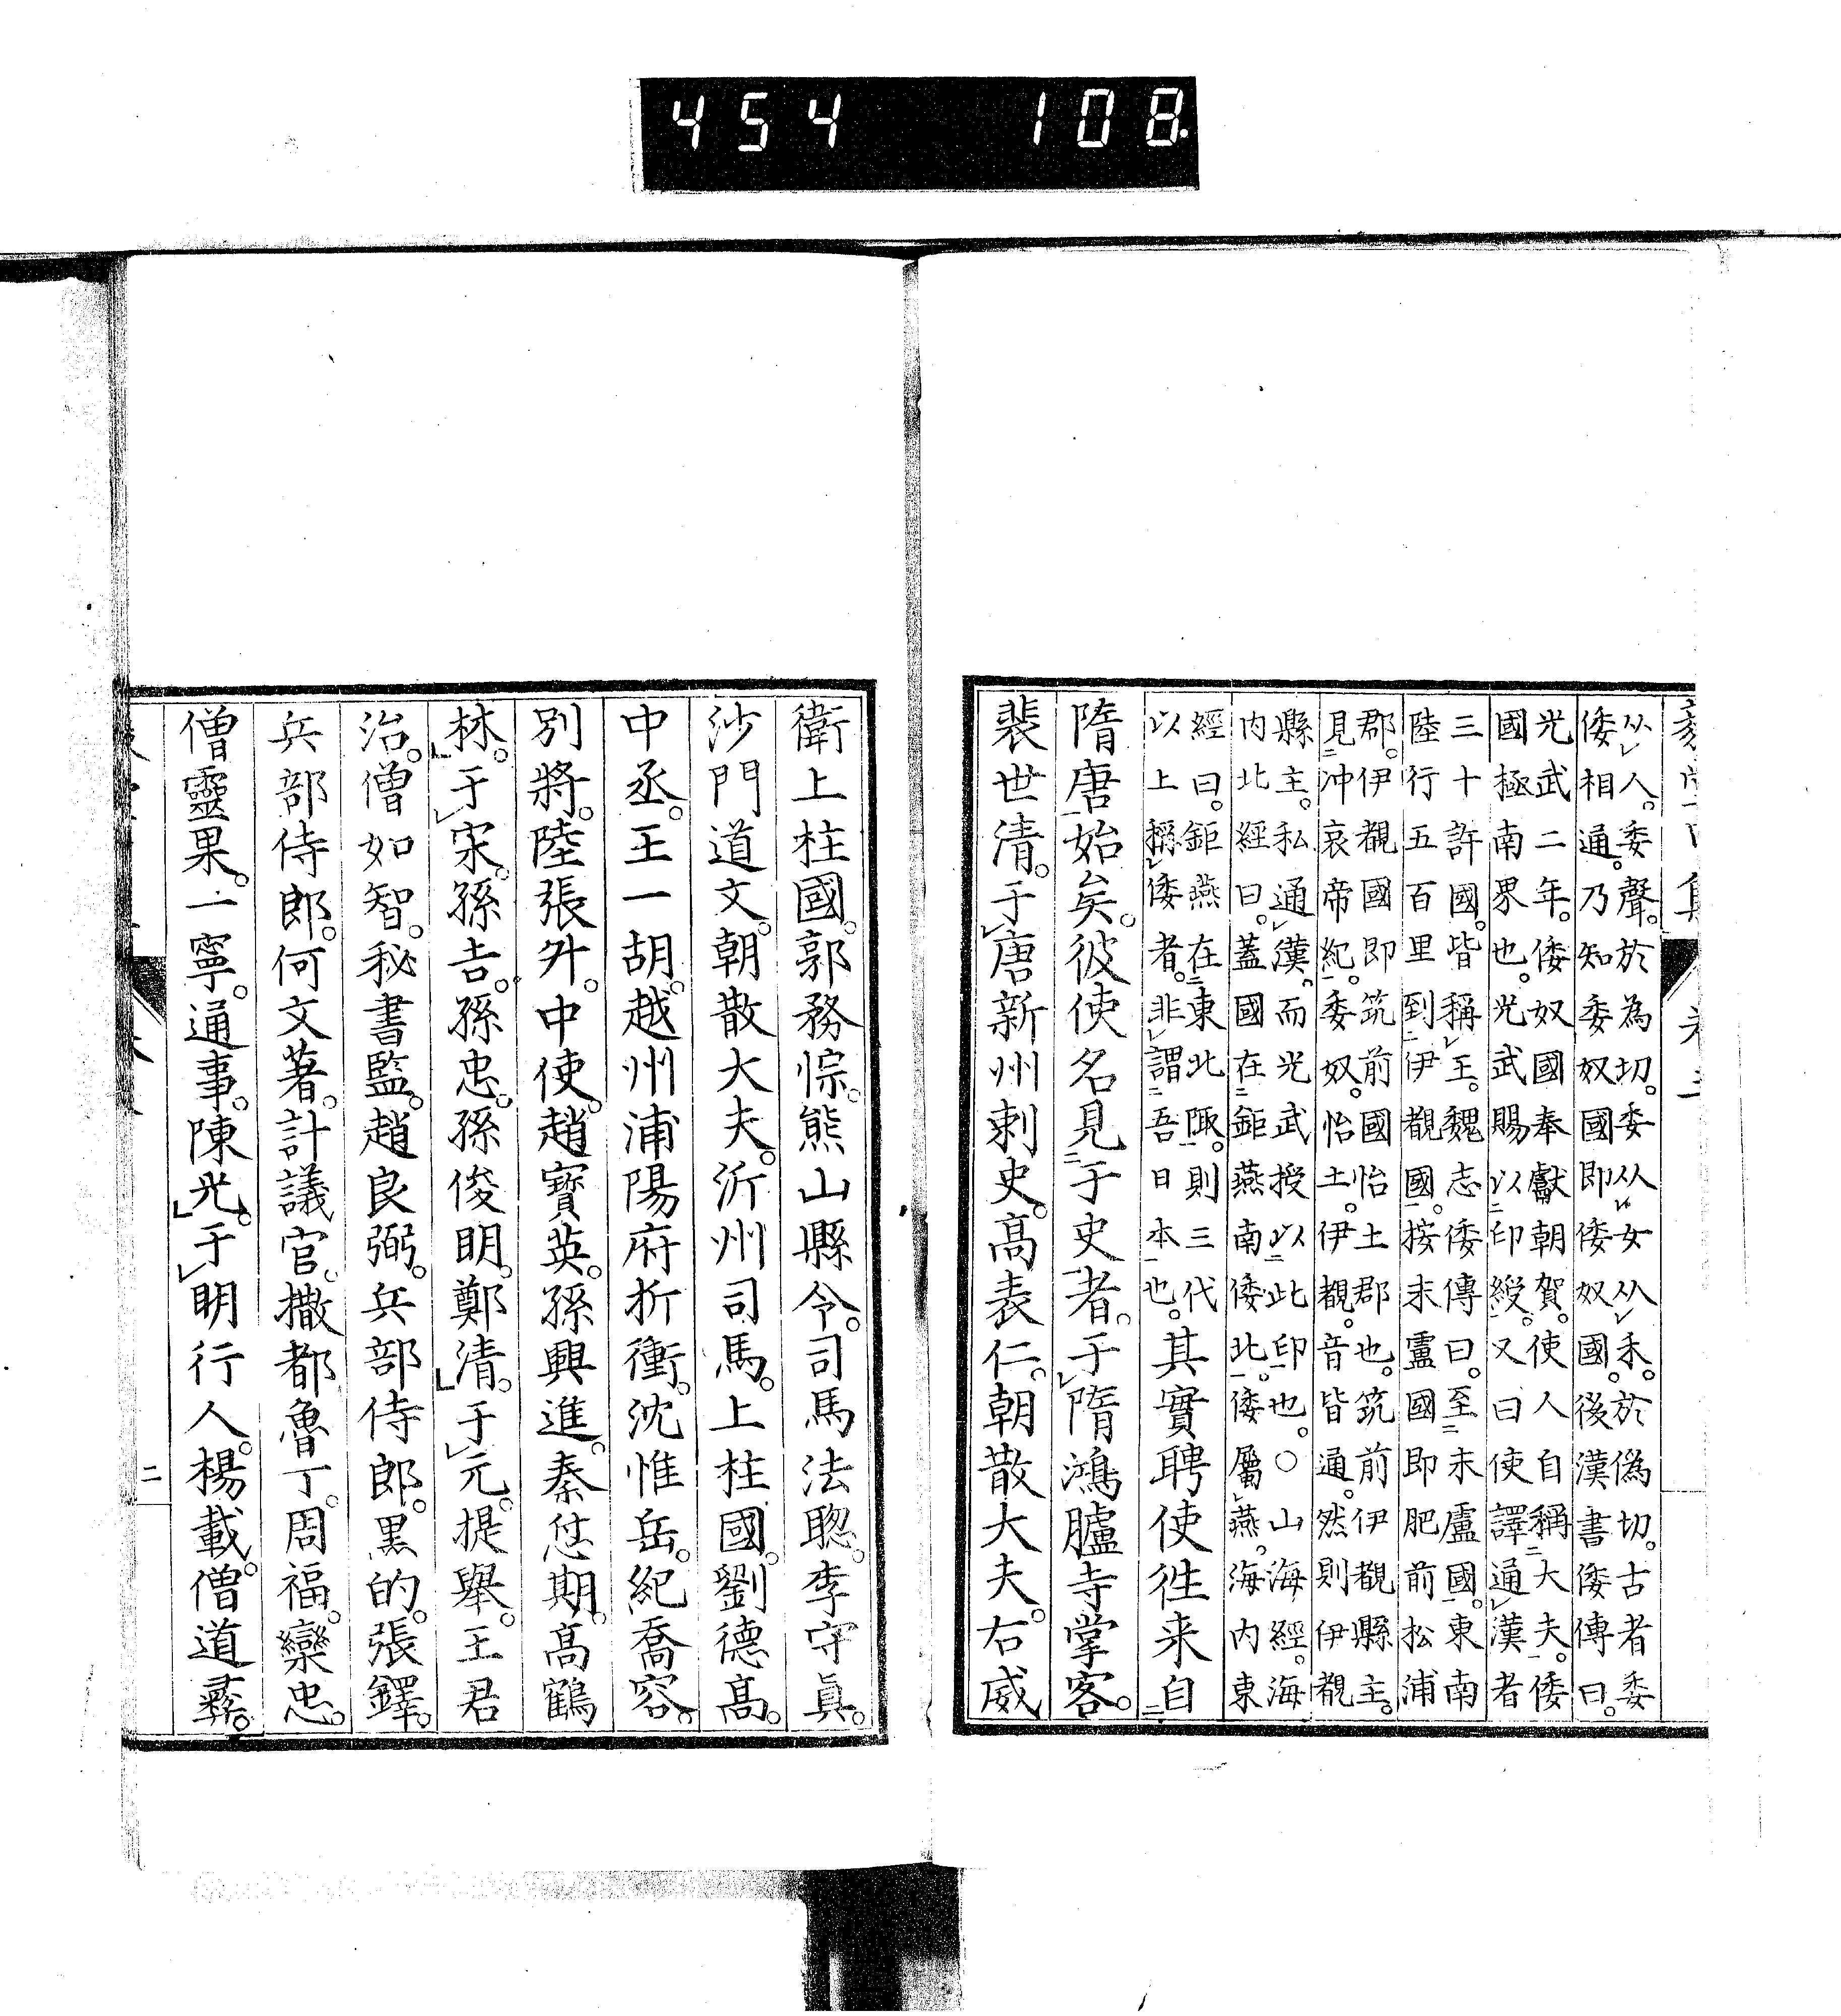 454 108
从人。委聲。於為切。委从女从禾。於僞切。古者委
倭相通。乃知委奴國即倭奴國。後漢書倭傳曰。
光武二年。倭奴國奉獻朝賀。使人自稱大夫。倭
國極南界也。光武賜以印綬。又曰使譯通漢者
三十許國。皆稱王。魏志倭傳曰。至末盧國。東南
陸行五百里到伊覩國。按末盧國即肥前松浦
郡。伊覩國即筑前國怡土郡也。筑前伊覩縣主。
見冲哀帝紀。委奴。怡土。伊覩。音皆通。然則伊覩
縣主。私通漢。而光武授以此印也。○山海經。海
内北經曰。蓋國在鉅燕南倭北。倭屬燕。海内東
經曰。鉅燕在東北陬。則三代
以上稱倭者。非謂吾日本也。
其實聘使徃来自
隋唐始矣。彼使名見于史者。于隋鴻臚寺掌客。
裴世清。于唐新州刺史。高表仁。朝散大夫。右威
衛上柱國。郭務悰。熊山縣令。司馬法聰。李守眞。
沙門道文。朝散大夫。沂州司馬。上柱國。劉德高。
中丞。王一胡。越州浦陽府折衝。沈惟岳。紀喬容。
別將。陸張升。中使。趙寶英。孫興進。秦愆期。高鶴
林。于宋。孫吉。孫忠。孫俊明。鄭清。于元。提舉。王君
治。僧如智。秘書監。趙良弼。兵部侍郎。黒的。張鐸。
兵部侍郎。何文著。計議官。撒都魯丁。周福。欒忠。
僧靈果。一寧。通事。陳光。于明行人。楊載。僧道彛。
二